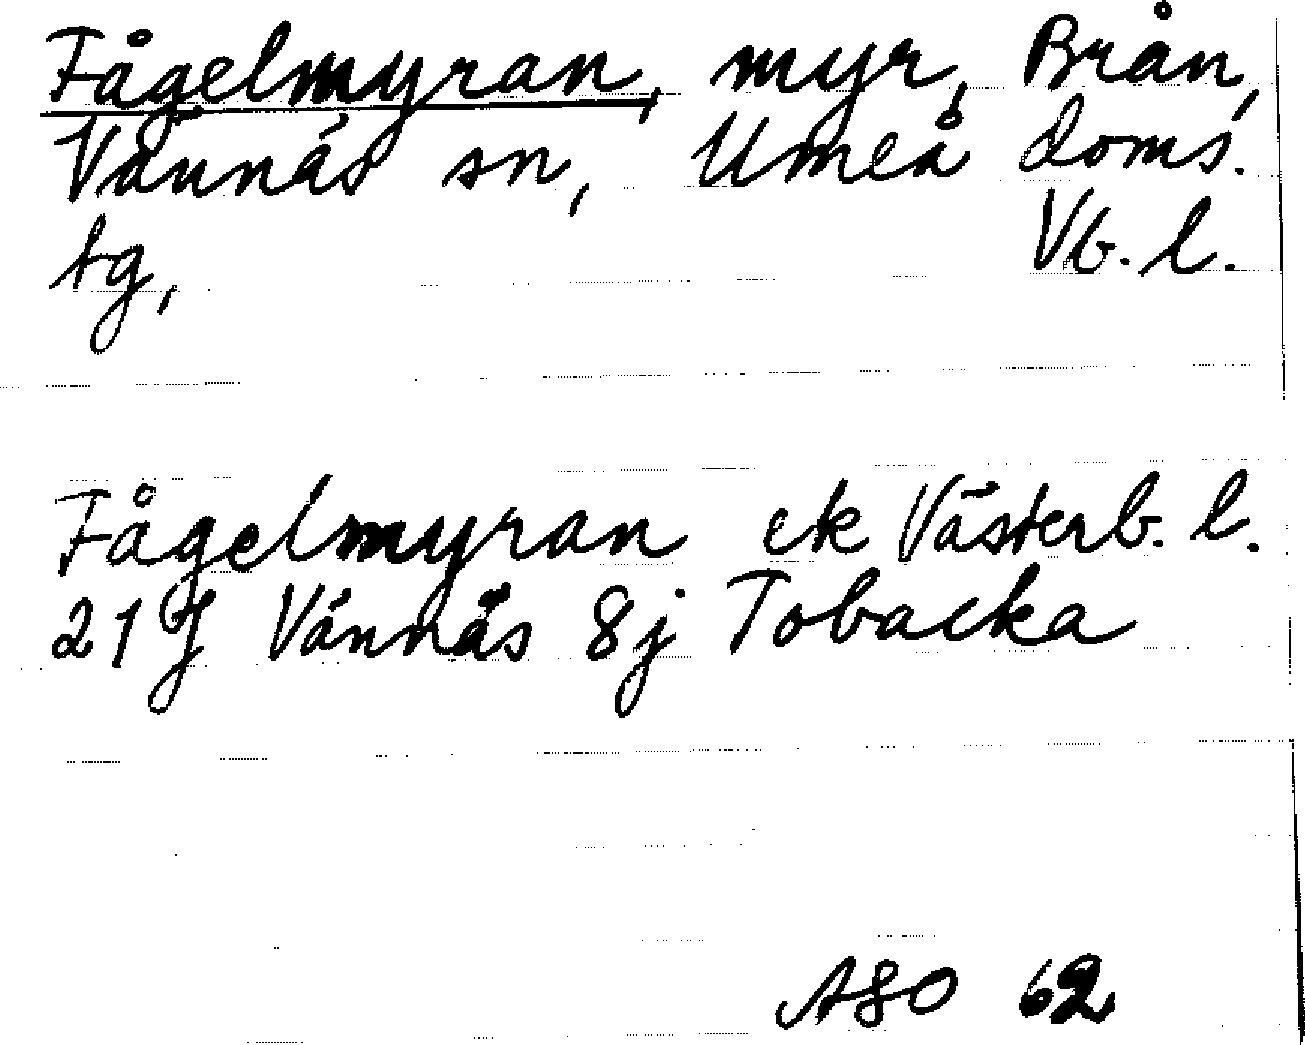 Fågelmyran, myr, Brån,
Vännäs sn, Umeå doms.
tg, Vb. l.
Fågelmyran ek Västerb. l.
21 J Vännäs 8j Tobacka
ASO 62